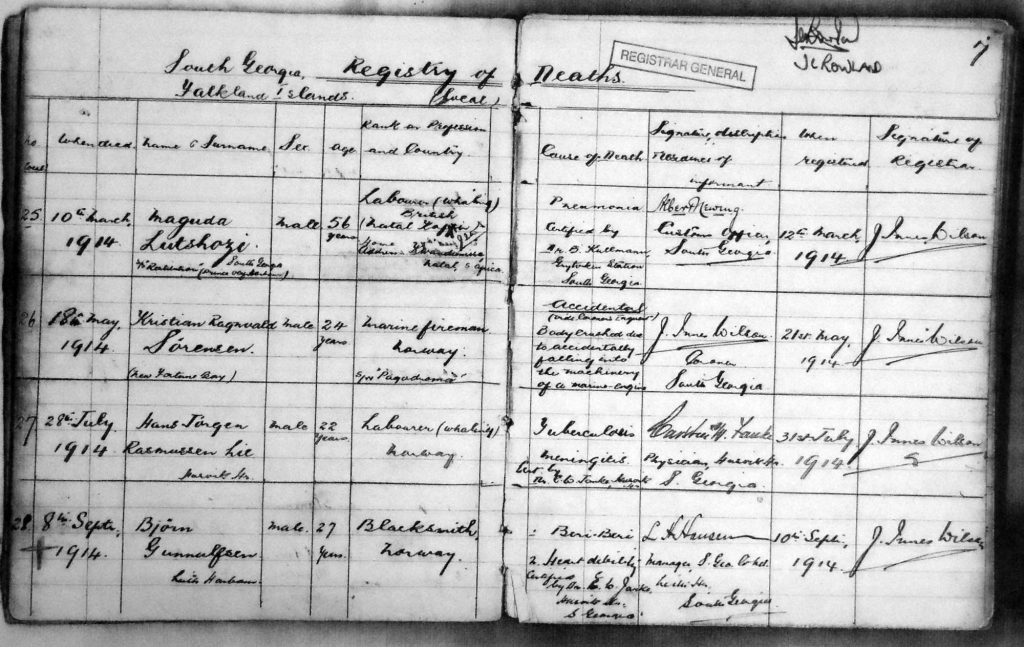 J C ROWLAND
7
REGISTRAR GENERAL
South Georgia, Registry of Deaths.
Falkland Islands. (Local)
no
Local
When died
name & Surname
Sex
age
Rank or Profession
and Country
Cause of Death
Signature, description
Residence of
informant
When
registered
Signature of
Registrar
25
10th March,
1914
Maguda
Lutshozi.
South Georgia
male
56
years
Labourer (whaling)
British
(Natal
Home
Address
Natal, S. Africa
Pneumonia
Certified by
Dr.
Station
South Georgia
Albert Newing.
Customs Officer,
South Georgia
12th March,
1914
J. Innes Wilson
26
18th May,
1914
Kristian Ragnvald
Sörensen.
(New Fortune Bay)
male
24
years
marine fireman
Norway.
s/s "Pagodroma"
Accidental
Body crushed due
to accidentally
falling into
the machinery
of a marine-engine
J. Innes Wilson
Coroner
South Georgia
21st May,
1914
J. Innes Wilson
27
28th July,
1914
Hans Törgen
Rasmussen Lie
Husvik Hr.
male
22
years
Labourer (whaling)
Norway.
Tuberculosis
meningitis
Cert. by
Dr.
Physician, Husvik Hr.
S. Georgia.
31st July,
1914
J. Innes Wilson
28
8th Septr,
1914
Björn
Gunnulfsen
Leith Harbour
male.
27
yrs.
Blacksmith,
Norway.
Beri-Beri
2. Heart debility
Certified
by Dr.
Husvik Hr.
S Georgia
L H Hansen
manager, S. Geo. Co Ltd.
Leith Hr.
South Georgia
10th Septr,
1914
J. Innes Wilson